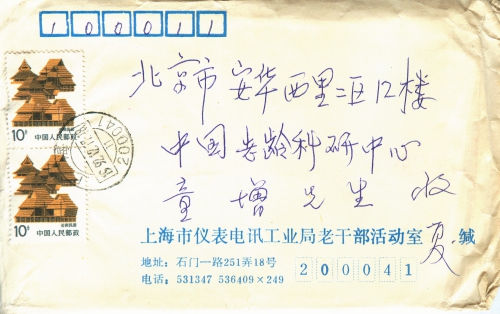 100011
北京市安华西里二区12楼
中国老龄科研中心
童增先生 收
上海市仪表电讯工业局老干部活动室 夏 缄
地址：石门一路251弄18号
电话：531347 536409×249
200041
10分
中国人民邮政
10分
云南民居
中国人民邮政
200041
上海